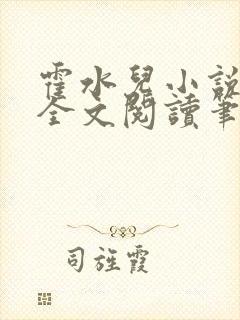 霍水兒小說
全文閱讀筆
司旌霞